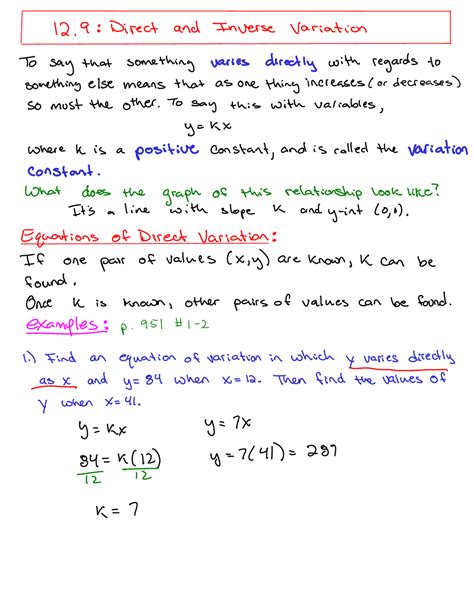 12.9: Direct and Inverse Variation
To say that something varies directly with regards to
something else means that as one thing increases (or decreases)
so must the other. To say this with variables,
y = Kx
where K is a positive constant, and is called the variation
constant.
What does the graph of this relationship look like?
It's a line with slope K and y-int (0,0).
Equations of Direct Variation:
If one pair of values (x,y) are known, K can be
found.
Once K is known, other pairs of values can be found.
examples: p. 951 #1-2
1.) Find an equation of variation in which y varies directly
as x and y = 84 when x = 12. Then find the values of
y when x = 41.
y = Kx y = 7x
84 = K(12) y = 7(41) = 287
12 12
K = 7